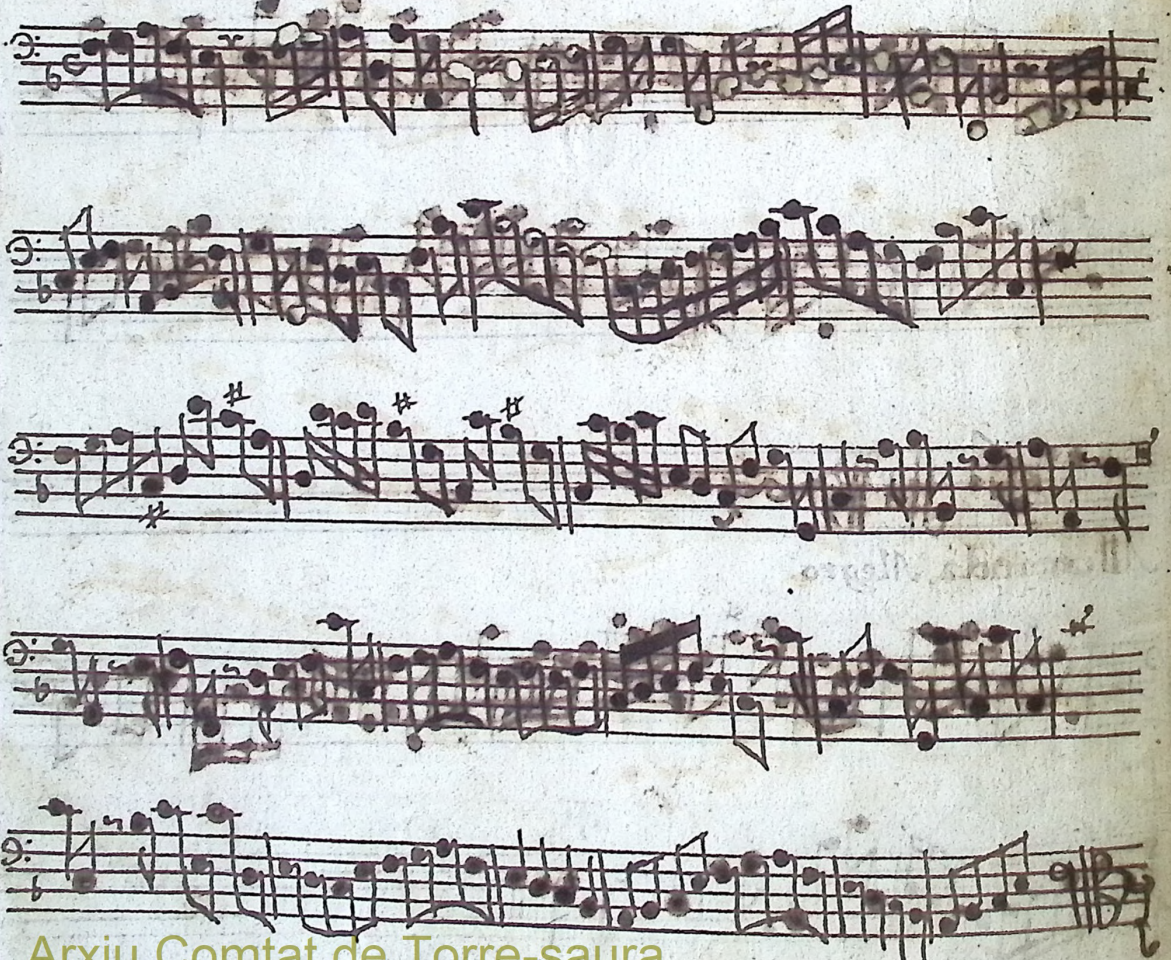 Arxiu Comtat de Torre-saura